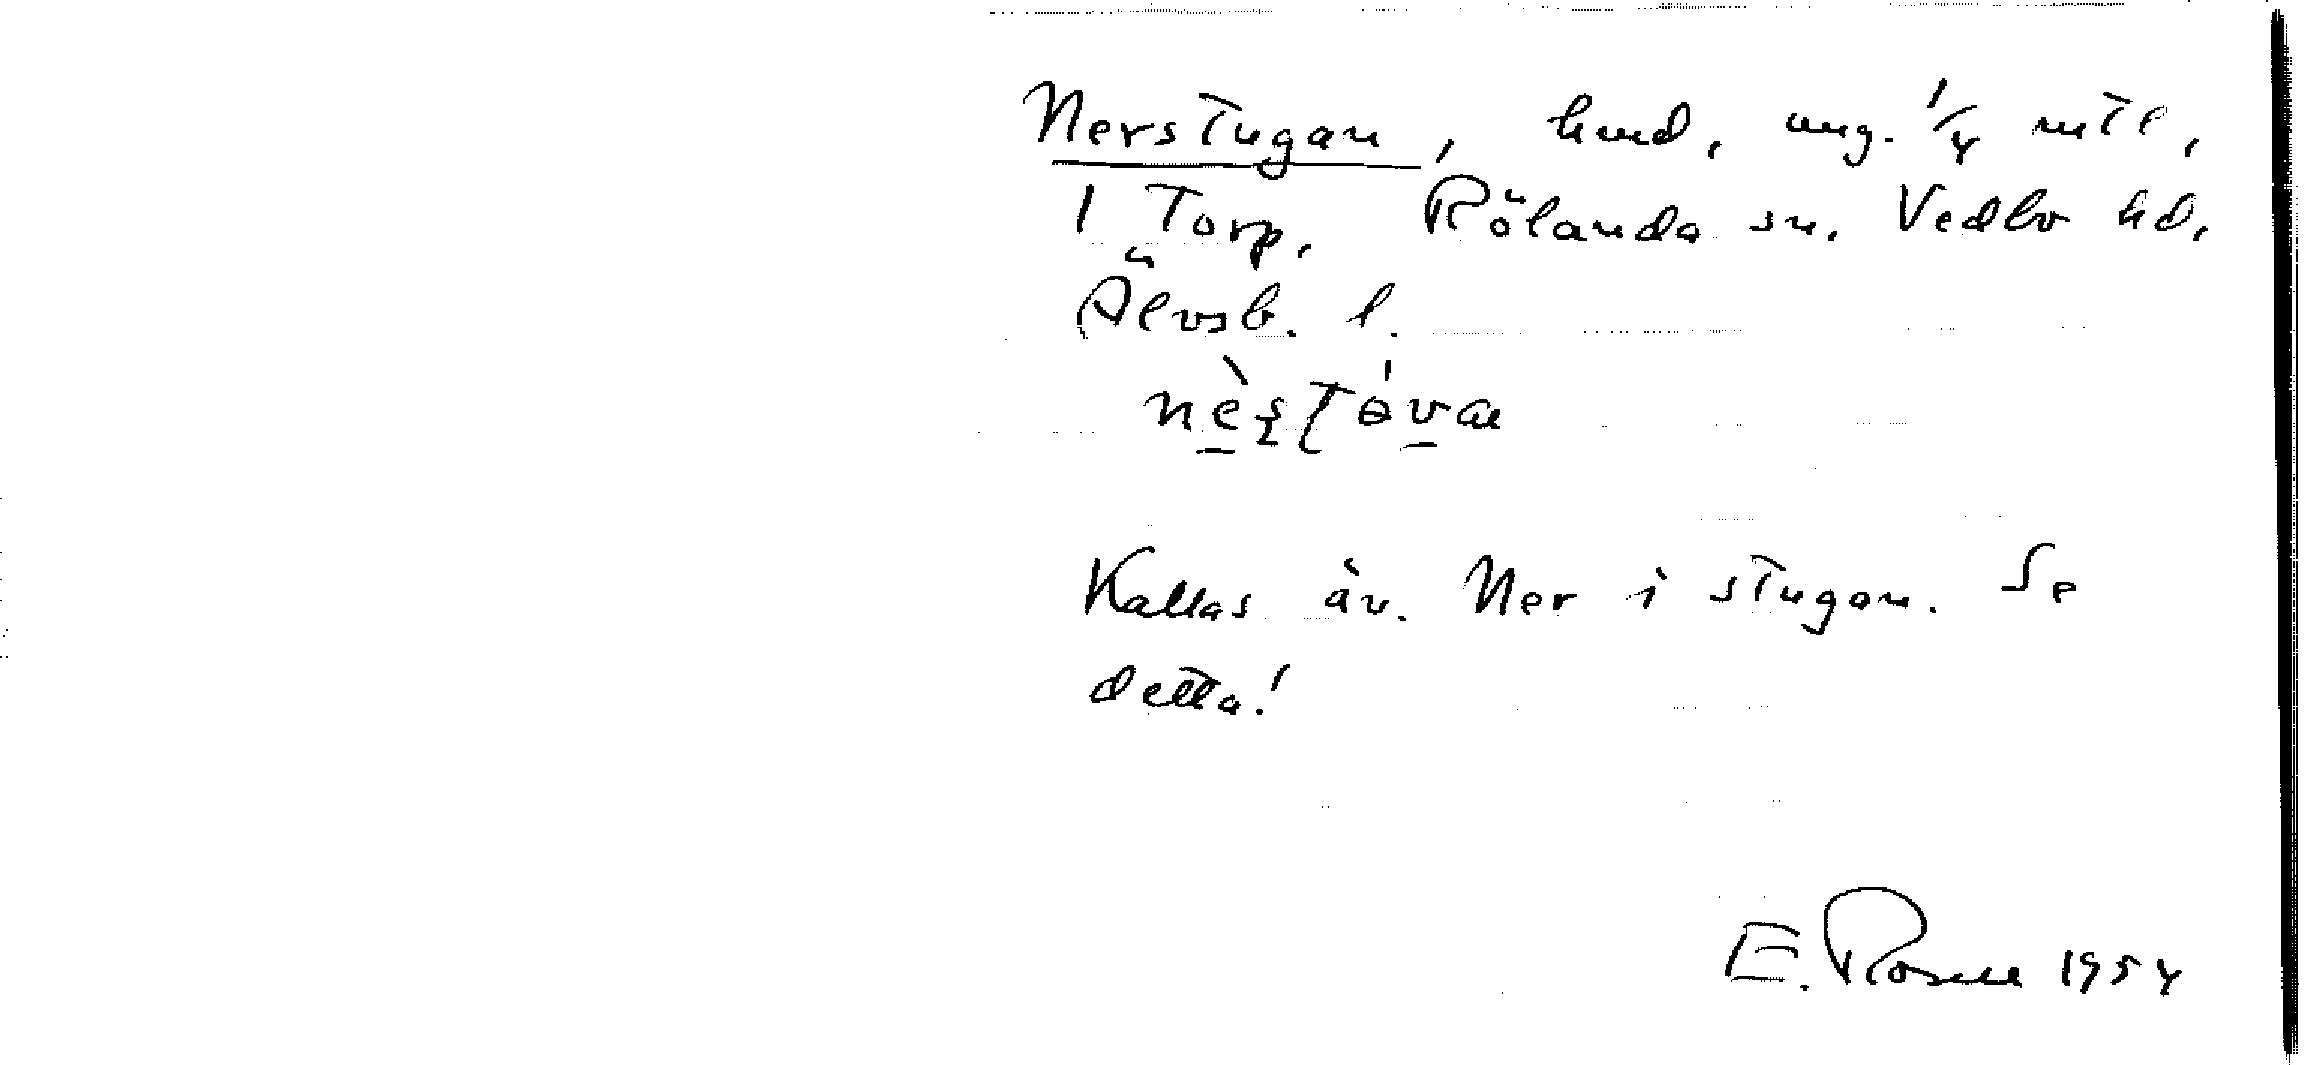 Nerstugan, hmd, ung. 1/4 mtl,
1 Torp, Rölanda sn. Vedbo hd,
Älvsb. l.
Kallas äv. Ner i stugan. Se
detta!
E. 1954